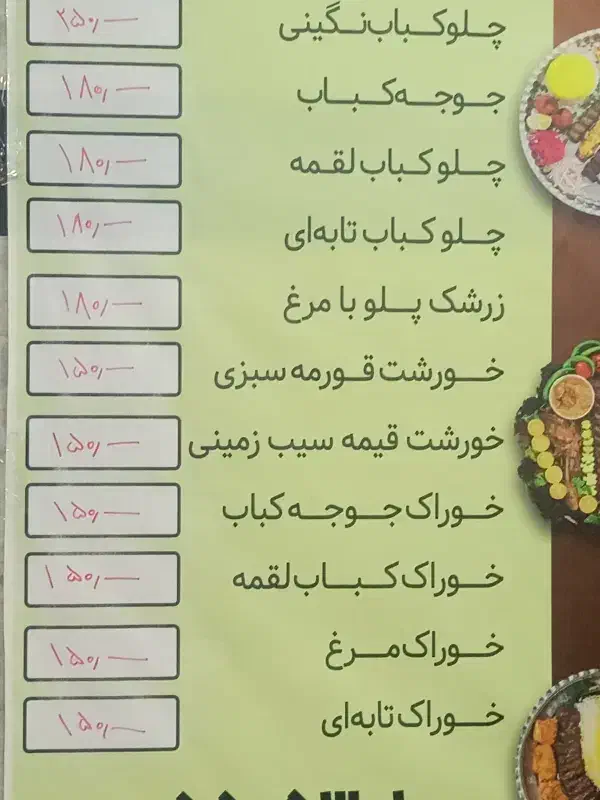 چلوکباب نگینی ۲۵۰,—
جوجه کباب ۱۸۰,—
چلو کباب لقمه ۱۸۰,—
چلو کباب تابه‌ای ۱۸۰,—
زرشک پلو با مرغ ۱۸۰,—
خورشت قورمه سبزی ۱۵۰,—
خورشت قیمه سیب زمینی ۱۵۰,—
خوراک جوجه کباب ۱۵۰,—
خوراک کباب لقمه ۱۵۰,—
خوراک مرغ ۱۵۰,—
خوراک تابه‌ای ۱۵۰,—